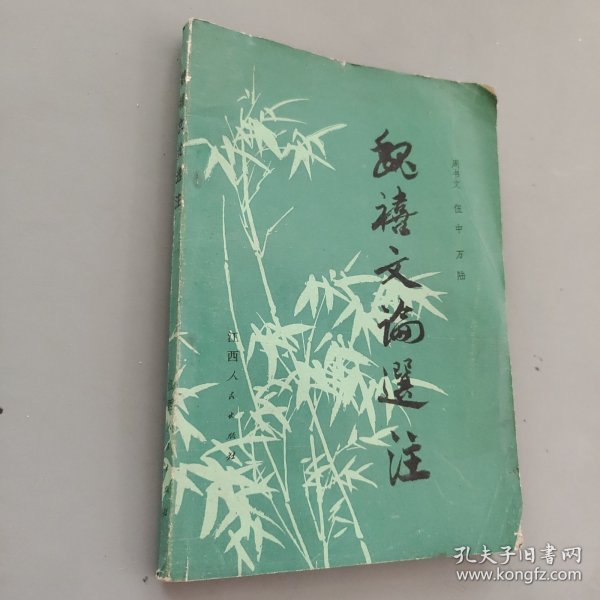 魏禧文論選注
周书文 伍中 万陆
江西人民出版社
選注
孔夫子旧書网
www.kongfz.com